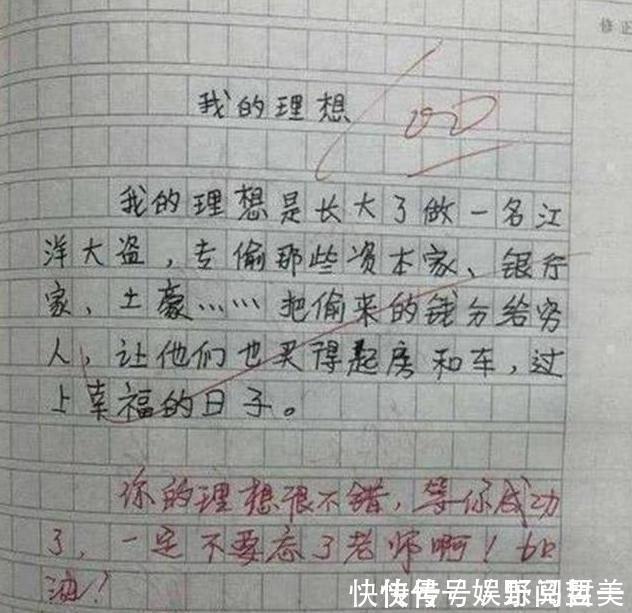 修正
我的理想
我的理想是长大了做一名江
洋大盗，专偷那些资本家、银行
家、土豪……把偷来的钱分给穷
人，让他们也买得起房和车，过
上幸福的日子。
你的理想很不错，等你成功
了，一定不要忘了老师啊！加
油！